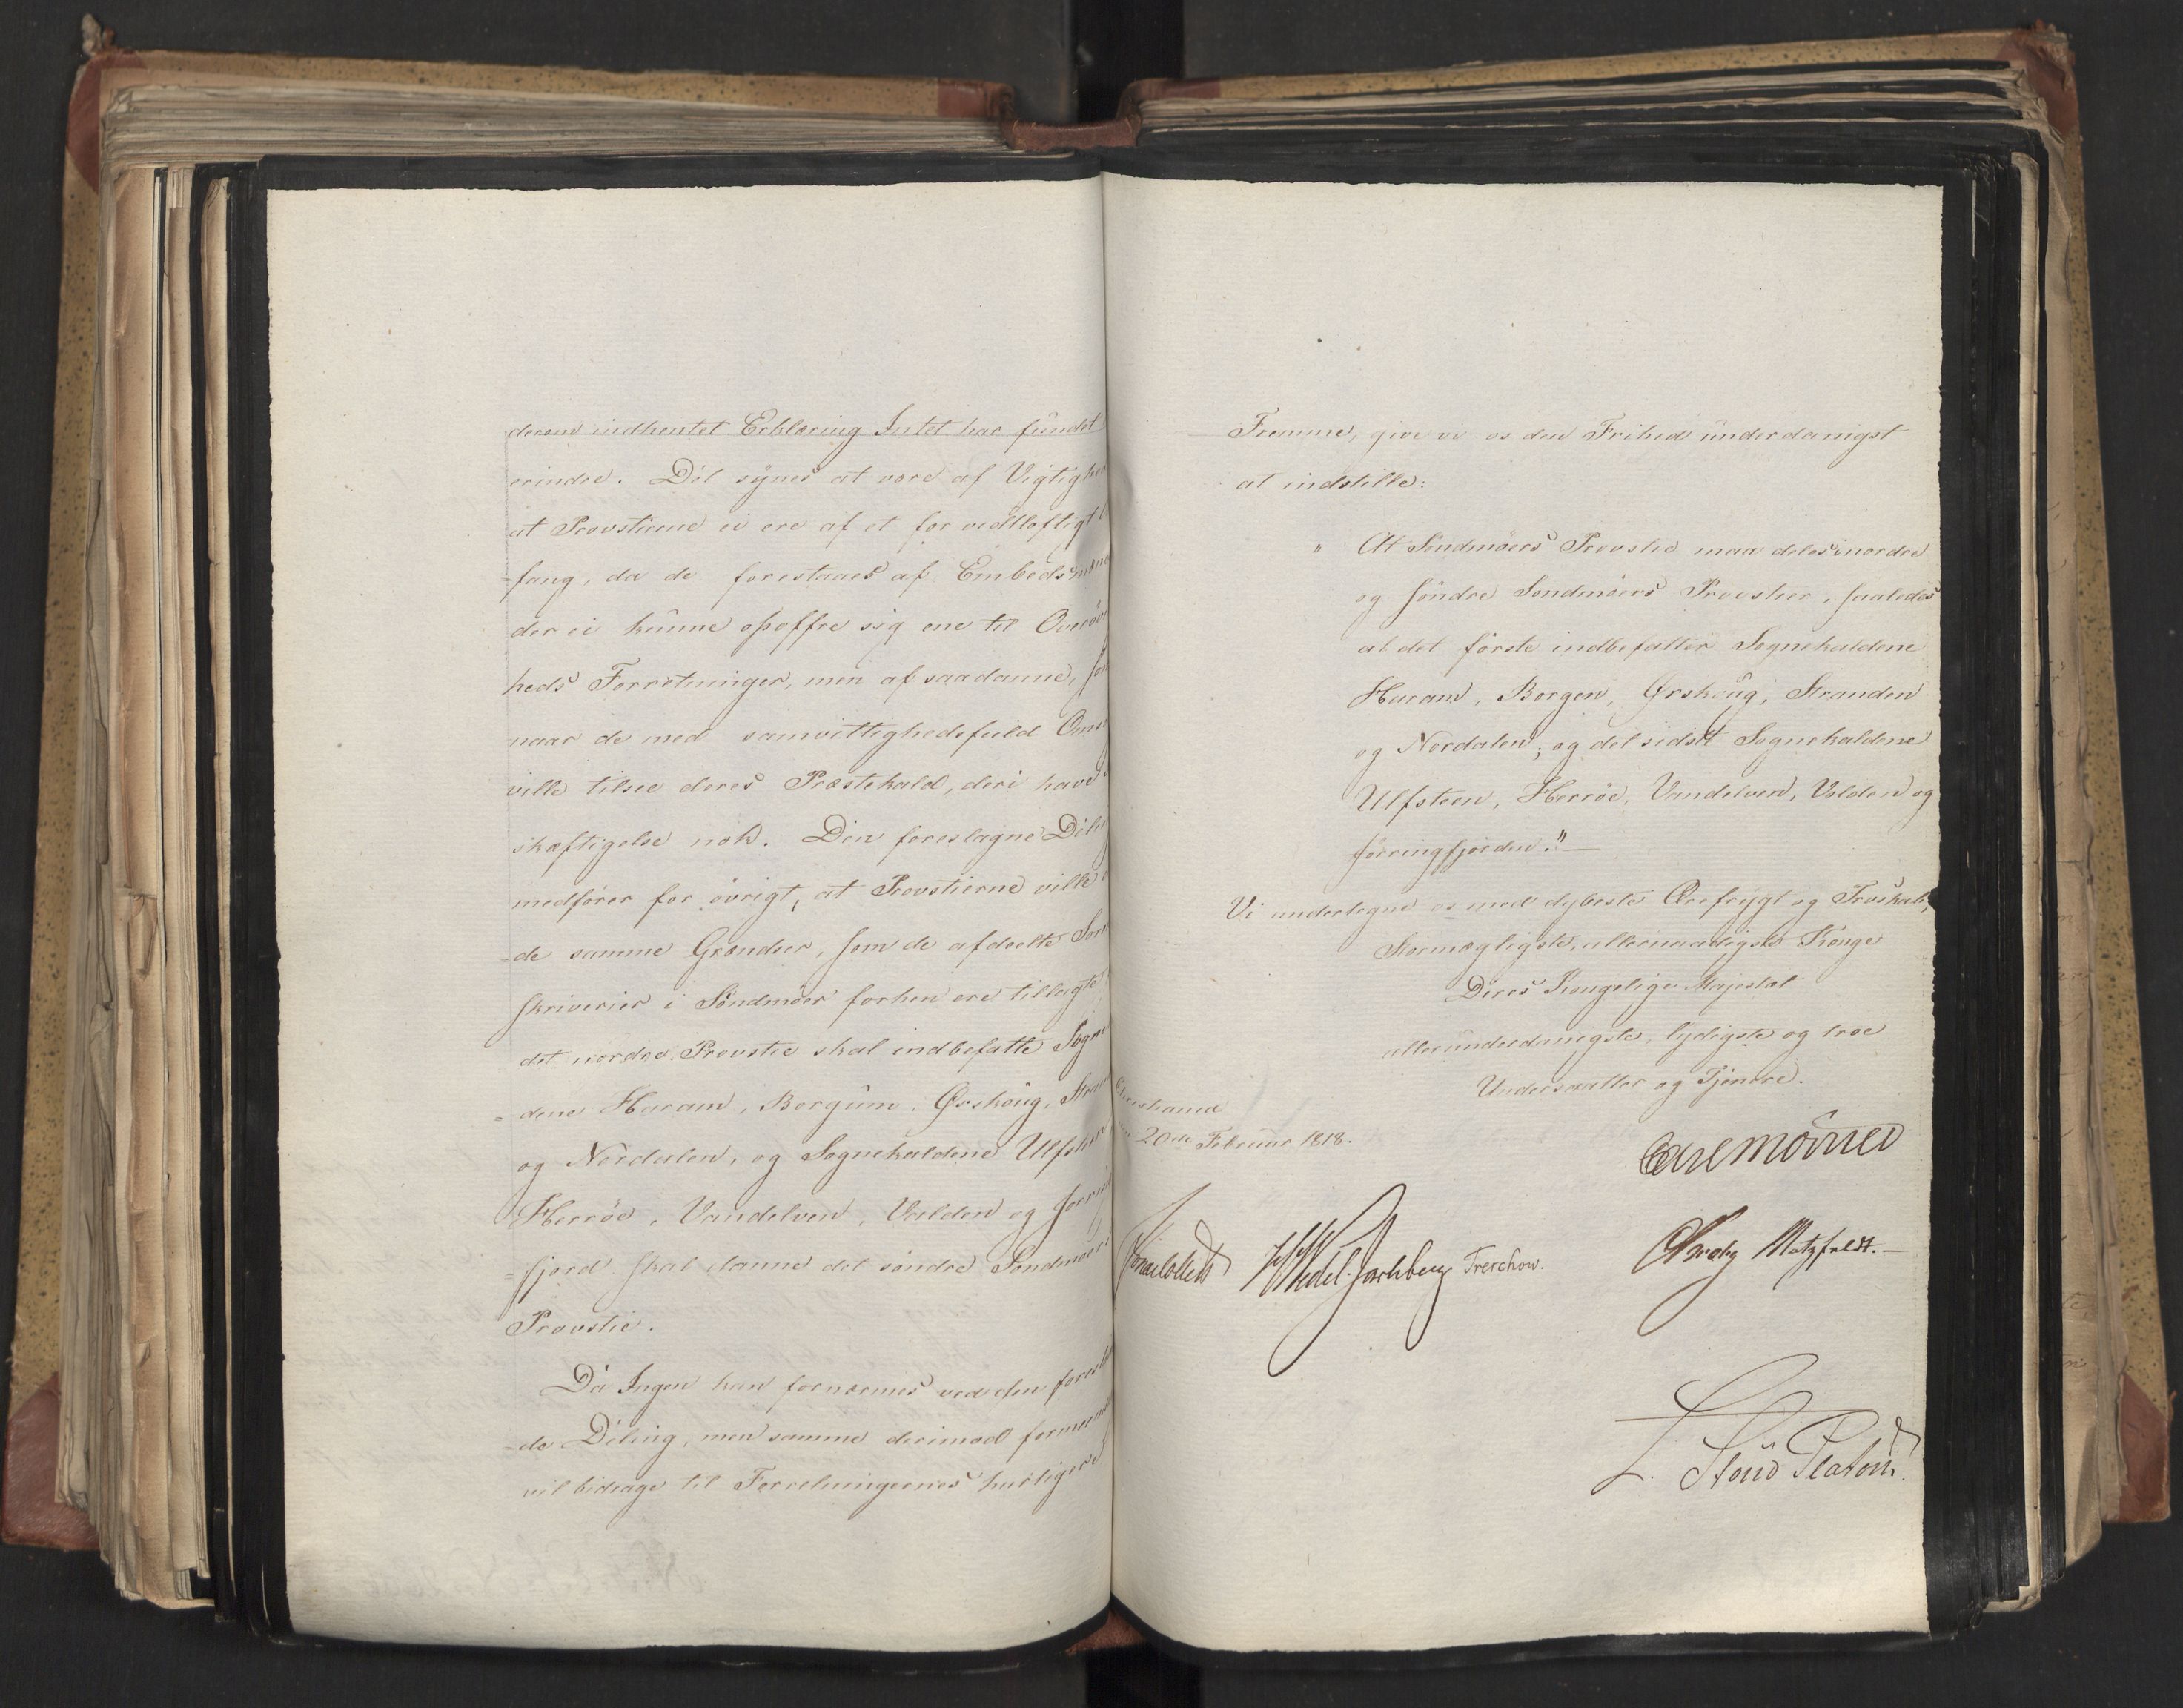 derom indhentet Erklæring Intet har fundet
erindre. Det synes at være af Vigtighed
at Provstierne ei ere af et for vidtløftigt
fang, da de forestaaes af Embedsmænd
der ei kunne opoffre sig ene til Overøv
heds Forretninger, men af saadanne, som
naar de med samvittighedsfuld Oms
ville tilsee deres Præstekald, deri have
skæftigelse nok. Den foreslagne Deling
medfører for øvrigt, at Provstierne ville
de samme Grændser, som de afdeelte Soren
skriverier i Søndmøer forhen ere tillagte
det nordre Provstie skal indbefatte Sogne
dene Haram, Borgum, Ørskoug, Strand
og Nordalen, og Sognekaldene Ulfsteen
Herrøe, Vandelven, Volden og Jørring
fjord skal danne det søndre Søndmøers
Provstie.
Da Ingen kan fornærmes ved den foreslaa
de Deling, men samme derimod formeent
vil bidrage til Forretningernes hurtigere
Fremme, give vi os den Frihed underdanigst
at indstille:
" At Søndmøers Provstie maa deles i nordre
og søndre Søndmøers Provstier, saaledes
at det første indbefatter Sognekaldene
Haram, Borgen, Ørskoug, Stranden
og Nordalen; og det sidste Sognekaldene
Ulfsteen, Herrøe, Vandelven, Volden og
Jørringfjorden."
Vi undertegne os med dybeste Ærefrygt og Troskab,
Stormægtigste, allernaadigste Konge
Deres Kongelige Majestæt
allerunderdanigste, lydigste og troe
Undersaatter og Tjenere.
Christiania
20de Februar 1818.
Carl Mörner
Jonas Collett HWedel-Jarlsberg Treschow. Motzfeldt.
L. Stoud Platou.